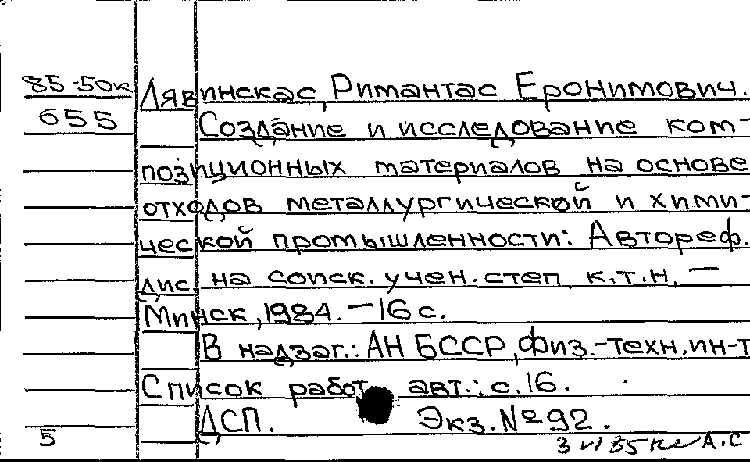 85-50к Лявинскас, Римантас Еронимович.
655 Создание и исследование ком-
позиционных материалов на основе
отходов металлургической и хими-
ческой промышленности: Автореф.
дис. на соиск. учен. степ к.т.н. —
Минск, 1984. — 16 с.
В надзаг.: АН БССР, Физ.-техн. ин-т
Список работ авт.: с. 16.
ДСП. Экз. № 92.
5 А.С